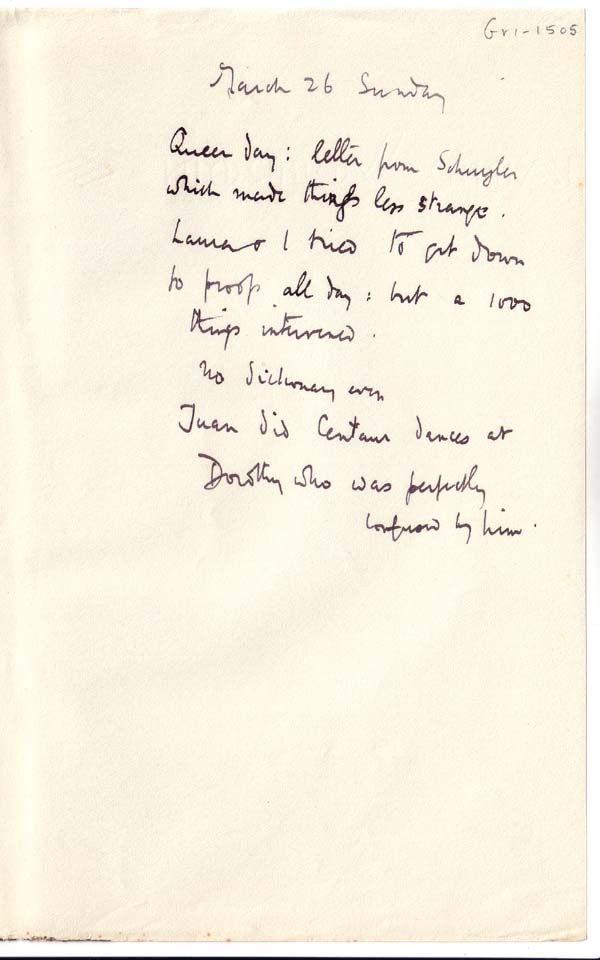 Gr1-1505
March 26 Sunday
Queer day: letter from Schuyler
which made things less strange.
Laura & I tried to get down
to proofs all day: but a 1000
things intervened.
No dictionary even
Juan did Centaur dances at
Dorothy who was perfectly
confused by him.